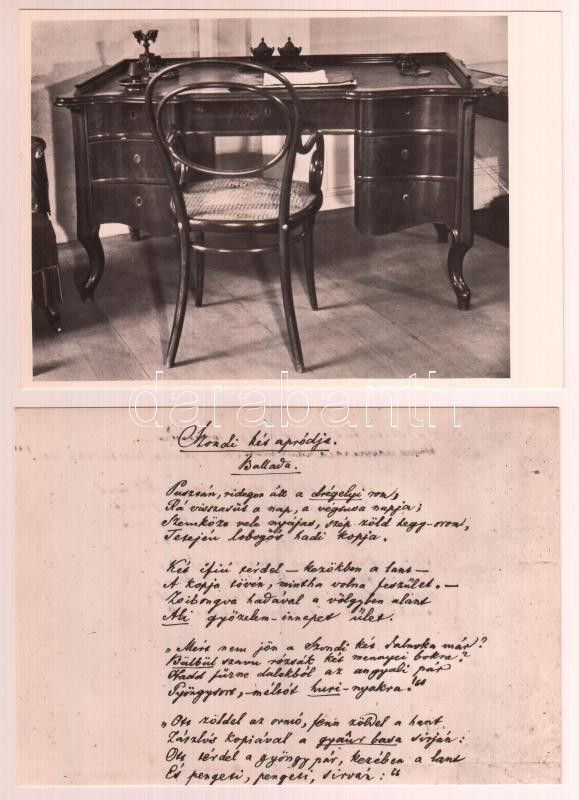 darabanth
Szondi két apródja.
Ballada.
Pusztán, ridegen áll a drégelyi rom,
Rá visszasüt a nap, a végtusa napja;
Szemközt vele nyájas, szép zöld hegy-orom,
Tetején lobogós hadi kopja.
Két ifiú térdel – kezökben a lant –
A kopja tövén, mintha volna feszület. –
Zsibongva hadával a völgyben alant
Ali győzelem-ünnepet ület.
„Mért nem jön a Szondi két dalnoka már?
Bülbül szavu rózsák két mennyei bokra?
Hadd fűzne dalokból az angyali pár
Gyöngysort, – mélsót huri-nyakra!"
„Ott zöldel az ormó, fenn zöldel a hant
Zászlós kopiával a gyaúr basa sirján:
Ott térdel a gyöngypár, kezében a lant
És pengeti, pengeti, sirván:"